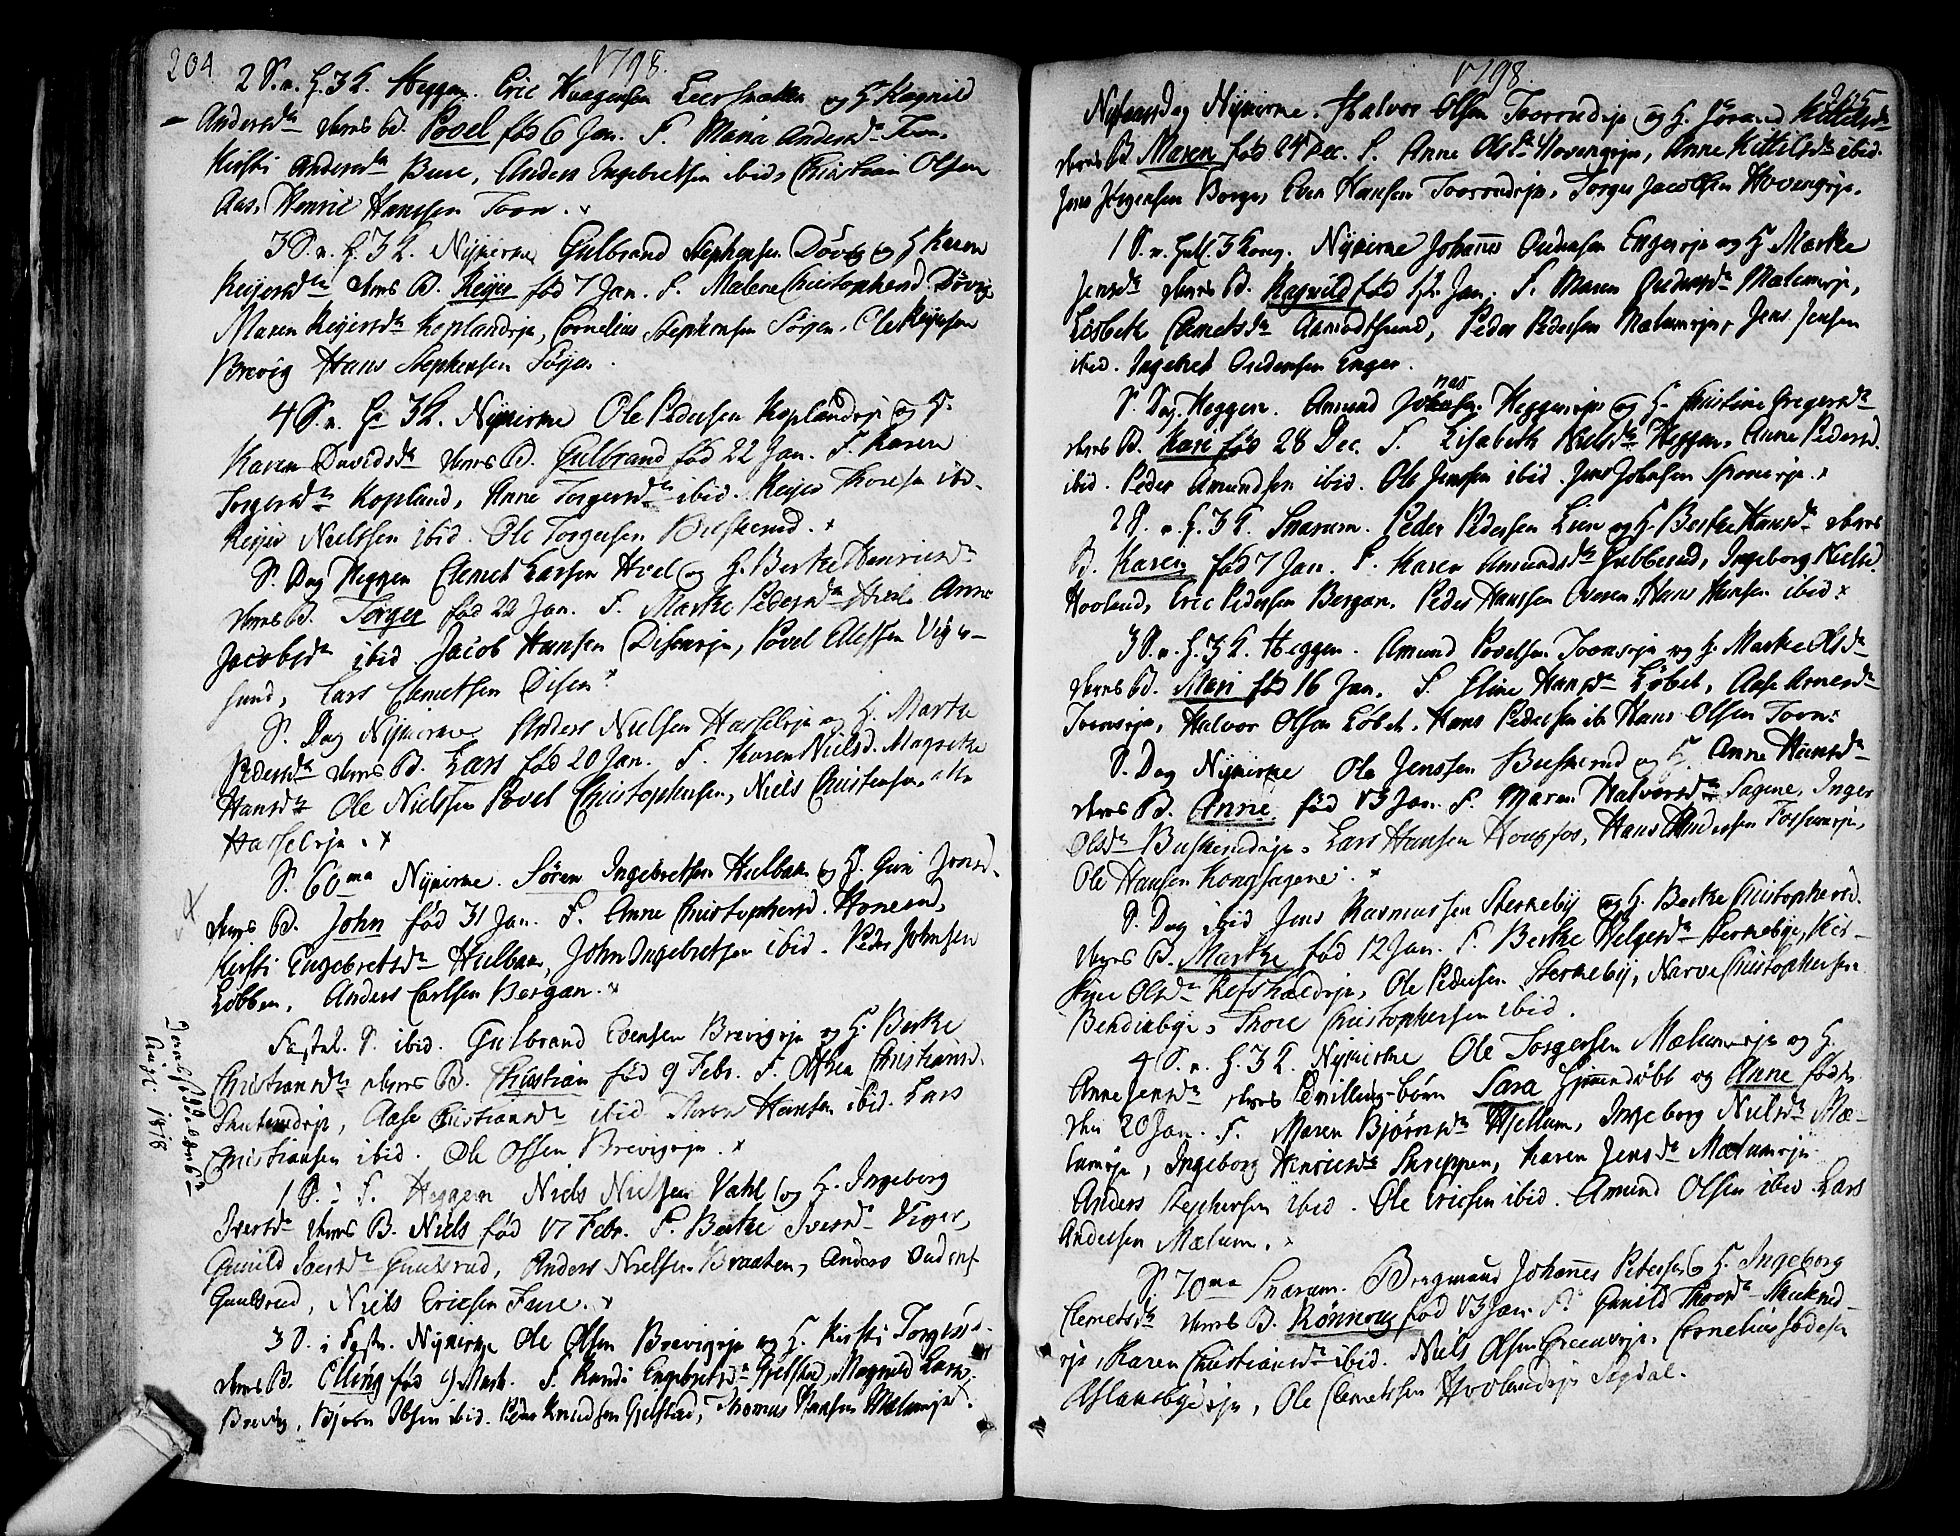 204
1798.
2 S. n. H. 3 K. Heggen. Eric Haagensen Leersnatten og H. Ragnild
Andersdr deres B. Povel fød 6 Jan. F. Maria Andersdr Torn.
Kirsti Andersdr Bure, Anders Ingebretsen ibid, Christian Olsen
Aas, Henric Hanssen Torn.
3 S. n. H. 3 K. Nykirke Gulbrand Stephensen Døvig og H. Karen
Reiersdr deres B. Reyer fød 7 Jan. F. Malene Christophersd. Døvig
Maren Reyersdr Koplandeje, Cornelius Stephensen Ole Reyersen
Brevig Hans Stephensen
4 S. n. H. 3 K. Nykirke Ole Pedersen Koplandeje og H.
Karen Davidsdr deres B. Gulbrand fød 22 Jan. F. Karen
Torgersdr Kopland, Anne Torgersdr ibid. Reyer Thoresen ibd.
Reyer Nielssen ibid. Ole Torgersen Buskerud.
S. Dag Heggen Clemet Larsen Hvel og H. Berthe Henricsdr
deres B. Torger fød 22 Jan. F. Marthe Pedersdr Anne
Jacobsdr ibid Jacob Hansen Diseneje, Povel Viger-
sund, Lars Clemetsen Disen
S. Dag Nykirke Anders Nielsen Hasseleje og H. Marthe
Pedersdr deres B. Lars fød 20 Jan. F. Karen Nielsd. Magrethe
Hansdr Ole Nielssen Povel Christophersen, Niels Christensen alle
Hasseleje.
S. 60ma Nykirke. Søren Ingebretsen Hulbak og H. Guri Jonsd.
deres B. John fød 31 Jan. F. Anne Christophersd. Honerud,
Kirsti Engebretsdr Hulbak, John Ingebretsen ibid. Peder Johnsen
Løbben, Anders Carlsen Bergan.
Fastel. S. ibid. Gulbrand Evensen Brevigeje og H. Berthe
Christiansdr deres B. Christian fød 9 Febr. F. Christiansd.
Aase Christiansdr ibid Hansen ibid. Lars
Christiansen ibid. Ole Olsen Brevigeje.
1 S. i F. Heggen Niels Nielsen Vahl og H. Ingeborg
Iversdr deres B. Niels fød 17 Febr. F. Berthe Iversdr Viger,
Gunild Iversdr Gunlsrud, Anders Nielsen Braaten, Anders
Gunlsrud, Niels Ericsen Fure.
3 S. i Fast. Nykirke Ole Olsen Brevigeje og H. Kirsti Torgersd.
deres B. Elling fød 9 Mart. F. Randi Engebretsdr Gjelstad, Magnild Larsd.
Brevig, Bjørn Olsen ibid. Peder Knudsen Gjelstad, Thomas Hansen Mælumeje.
Augt. 1818
1798.
205
Nytaarsdag Nykirke. Halvor Olsen Toverudeje og H. Jørand Kittilsdr
deres B. Maren fød 24 Dec. F. Anne Olsdr Hovengeje, Anne Kittilsdr ibid.
Jens Jørgensen Borge, Even Hansen Toverudeje, Torger Jacobsen Hovengeje.
1 S. n. Hell. 3 Kong. Nykirke Johannes Gudmsen Engereje og H. Marthe
Jensdr deres B. Ragnild fød Jan. F. Maren Andersdr Mælumeje,
Lisbeth Clemetsdr Aamodtsund, Peder Pedersen Mælumeje, Jens Jensen
ibid. Ingebret Gudmsen Enger.
S. Dag. Heggen. Amund Johansen Heggeneje og H. Christine Gregersdr
nas
deres B. Kari fød 28 Dec. F. Lisabeth Nielsdr Heggen, Anne Pedersd.
ibid. Peder Amundsen ibid. Ole Jenssen ibid. Jens Johnsen Sponeje.
2 S. n. H. 3 K. Snarum. Peder Pedersen Lien og H. Berthe Hansdr deres
B. Karen fød 7 Jan. F. Karen Amundsdr Gubberud, Ingeborg Nielsd.
Hovland, Eric Pedersen Bergan, Peder Hanssen Overn, Hans Hansen ibid.
3 S. n. H. 3 K. Heggen. Amund Povelsen Torneeje og H. Marthe Olsdr
deres B. Mari fød 16 Jan. F. Eline Hansdr Løbet, Aase Arnesdr
Tornseje, Halvor Olsen Løbet, Hans Pedersen ib. Hans Olsen Torn.
S. Dag Nykirke Ole Jenssen Buskerud og H. Anne Hansdr
deres B. Anne fød 13 Jan. F. Maren Halvorsdr Sagene, Inger
Olsdr Buskerudeje, Lars Hansen Hougfos, Hans Andersen Fossumeje,
Ole Hansen Kongssagene.
S. Dag ibid Jens Rasmussen Sterkeby og H. Berthe Christophersd.
deres B. Marthe fød 12 Jan. F. Berthe Helgesdr Sterkebye, Kir-
stine Olsdr Ole Pedersen Sterkeby, Narve Christophersen
Bendikbye, Thore Christophersen ibid.
4 S. n. H. 3 K. Nykirke Ole Torgersen Mælumeje og H.
Anne Jensdr deres Tvilling-børn Sara hjemmedøbt og Anne fødte
den 20 Jan. F. Maren Bjørnsdr Hellum, Ingeborg Nielsdr Mæ-
lumeje, Ingeborg Henricsdr Skreppen, Karen Jensdr Mælumeje
Anders Stephensen ibid. Ole Ericsen ibid. Amund Olsen ibid Lars
Andersen Mælum.
S. 70ma Snarum. Bergmand Johannes Petersen og H. Ingeborg
Clemetsdr deres B. Rønnoug fød 13 Jan. F. Gunild Thorsdr
eje, Karen Christiansdr ibid. Niels Olsen Greeneeje. Cornelius
Aslaksbyeeje, Ole Clemetsen Hovlandeje Sigdal.